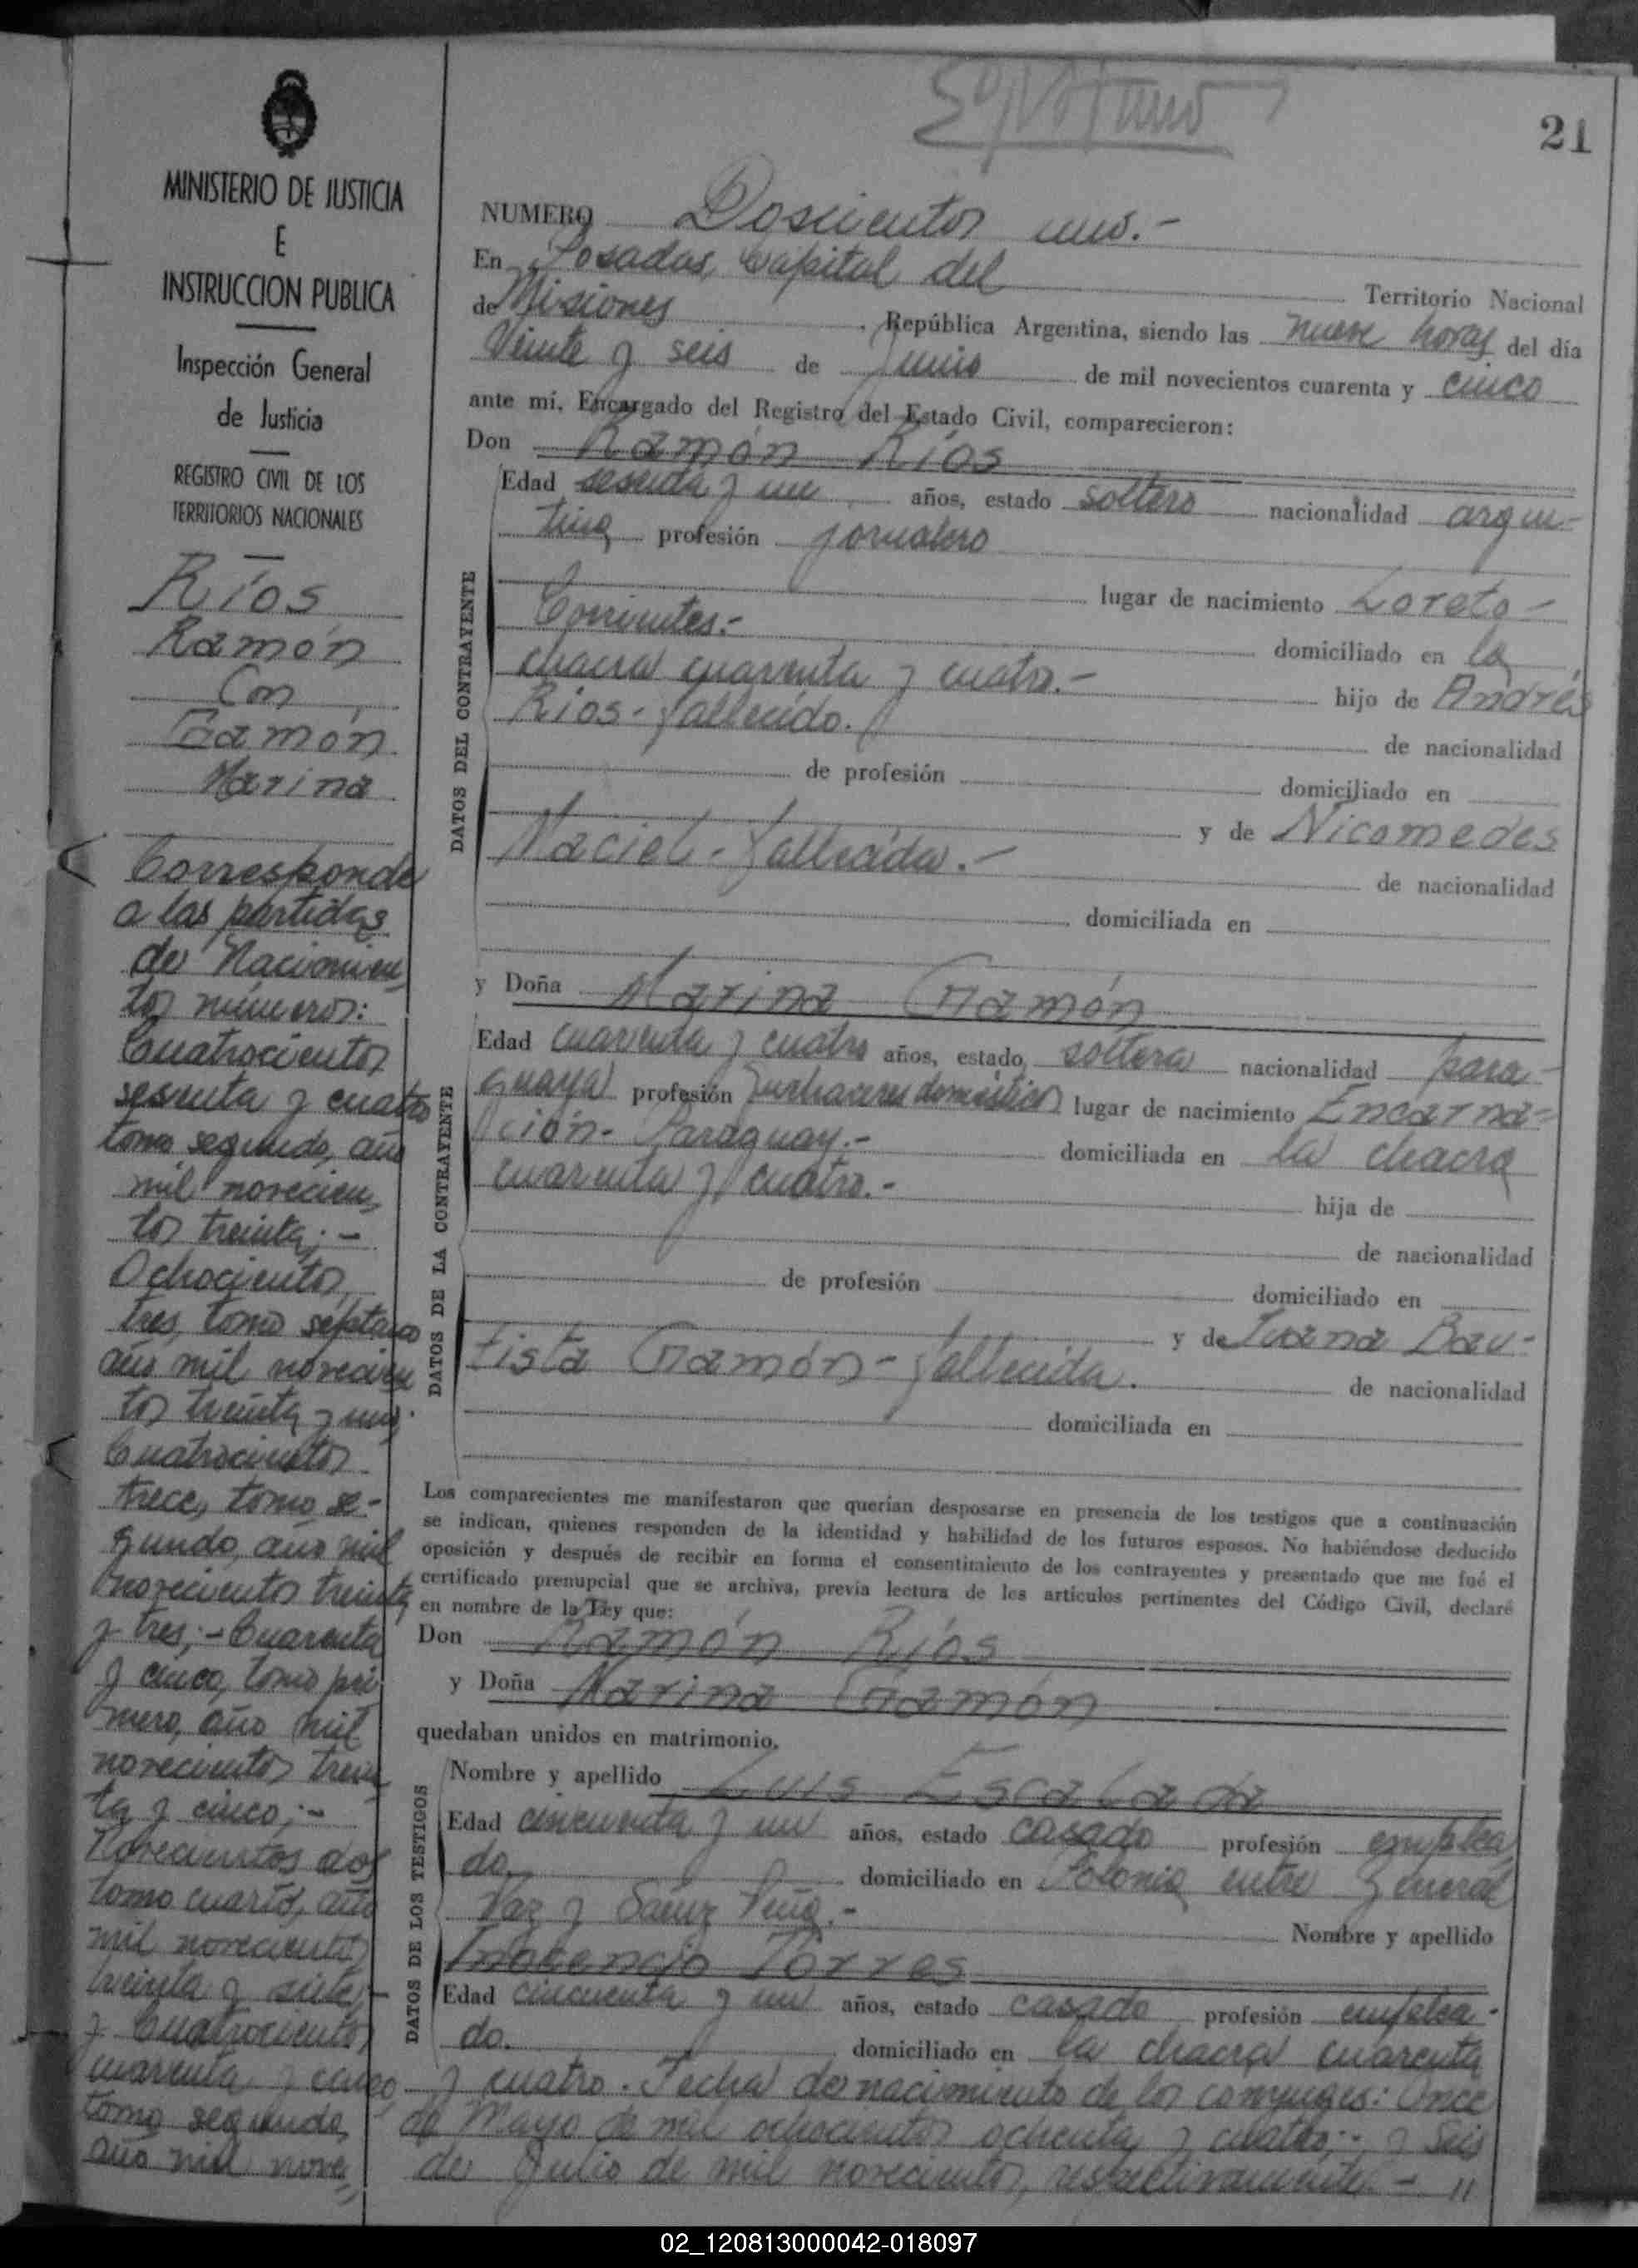 21
MINISTERIO DE JUSTICIA
E
INSTRUCCION PUBLICA
Inspección General
de Justicia
REGISTRO CIVIL DE LOS
TERRITORIOS NACIONALES
Ríos
Ramón
Con
Gamón
Marina
Corresponde
a las partidas
de Nacimien
tos números:
Cuatrocientos
sesenta y cuatro
tomo segundo, año
mil novecien
tos treinta; -
Ochocientos
tres, tomo séptimo
año mil novecien
tos treinta y uno;
Cuatrocientos
trece, tomo se-
gundo, año mil
novecientos treinta
y tres; - Cuarenta
y cinco, tomo pri
mero, año mil
novecientos trein
ta y cinco; -
Novecientos dos
tomo cuarto, año
mil novecientos
treinta y siete; -
y Cuatrocientos
cuarenta y cinco
tomo segundo,
año mil nove
NUMERO Doscientos uno.-
En Posadas, Capital del Territorio Nacional
de Misiones, República Argentina, siendo las nueve horas del día
Veinte y seis de Junio de mil novecientos cuarenta y cinco
ante mí, Encargado del Registro del Estado Civil, comparecieron:
Don Ramón Ríos
DATOS DEL CONTRAYENTE
Edad sesenta y un años, estado soltero nacionalidad argen-
tina profesión jornalero
lugar de nacimiento Loreto -
Corrientes.- domiciliado en la
chacra cuarenta y cuatro.- hijo de Andrés
Ríos - fallecido. de nacionalidad
de profesión domiciliado en
y de Nicomedes
Maciel - fallecida.- de nacionalidad
domiciliada en
y Doña Marina Gamón
DATOS DE LA CONTRAYENTE
Edad cuarenta y cuatro años, estado soltera nacionalidad para-
guaya profesión quehaceres domésticos lugar de nacimiento Encarna=
ción - Paraguay.- domiciliada en la chacra
cuarenta y cuatro.- hija de
de nacionalidad
de profesión domiciliado en
y de Juana Bau-
tista Gamón - fallecida. de nacionalidad
domiciliada en
Los comparecientes me manifestaron que querían desposarse en presencia de los testigos que a continuación
se indican, quienes responden de la identidad y habilidad de los futuros esposos. No habiéndose deducido
oposición y después de recibir en forma el consentimiento de los contrayentes y presentado que me fué el
certificado prenupcial que se archiva, previa lectura de los artículos pertinentes del Código Civil, declaré
en nombre de la Ley que:
Don Ramón Ríos
y Doña Marina Gamón
quedaban unidos en matrimonio.
DATOS DE LOS TESTIGOS
Nombre y apellido Luis Escalada
Edad cincuenta y un años, estado casado profesión emplea
do. domiciliado en Polonia entre General
Paz y Sáenz Peña.- Nombre y apellido
Inocencio Torres
Edad cincuenta y un años, estado casado profesión emplea-
do. domiciliado en la chacra cuarenta
y cuatro. Fecha de nacimiento de los conyuges: Once
de Mayo de mil ochocientos ochenta y cuatro;- y Seis
de Julio de mil novecientos, respectivamente. - "
02_120813000042-018097